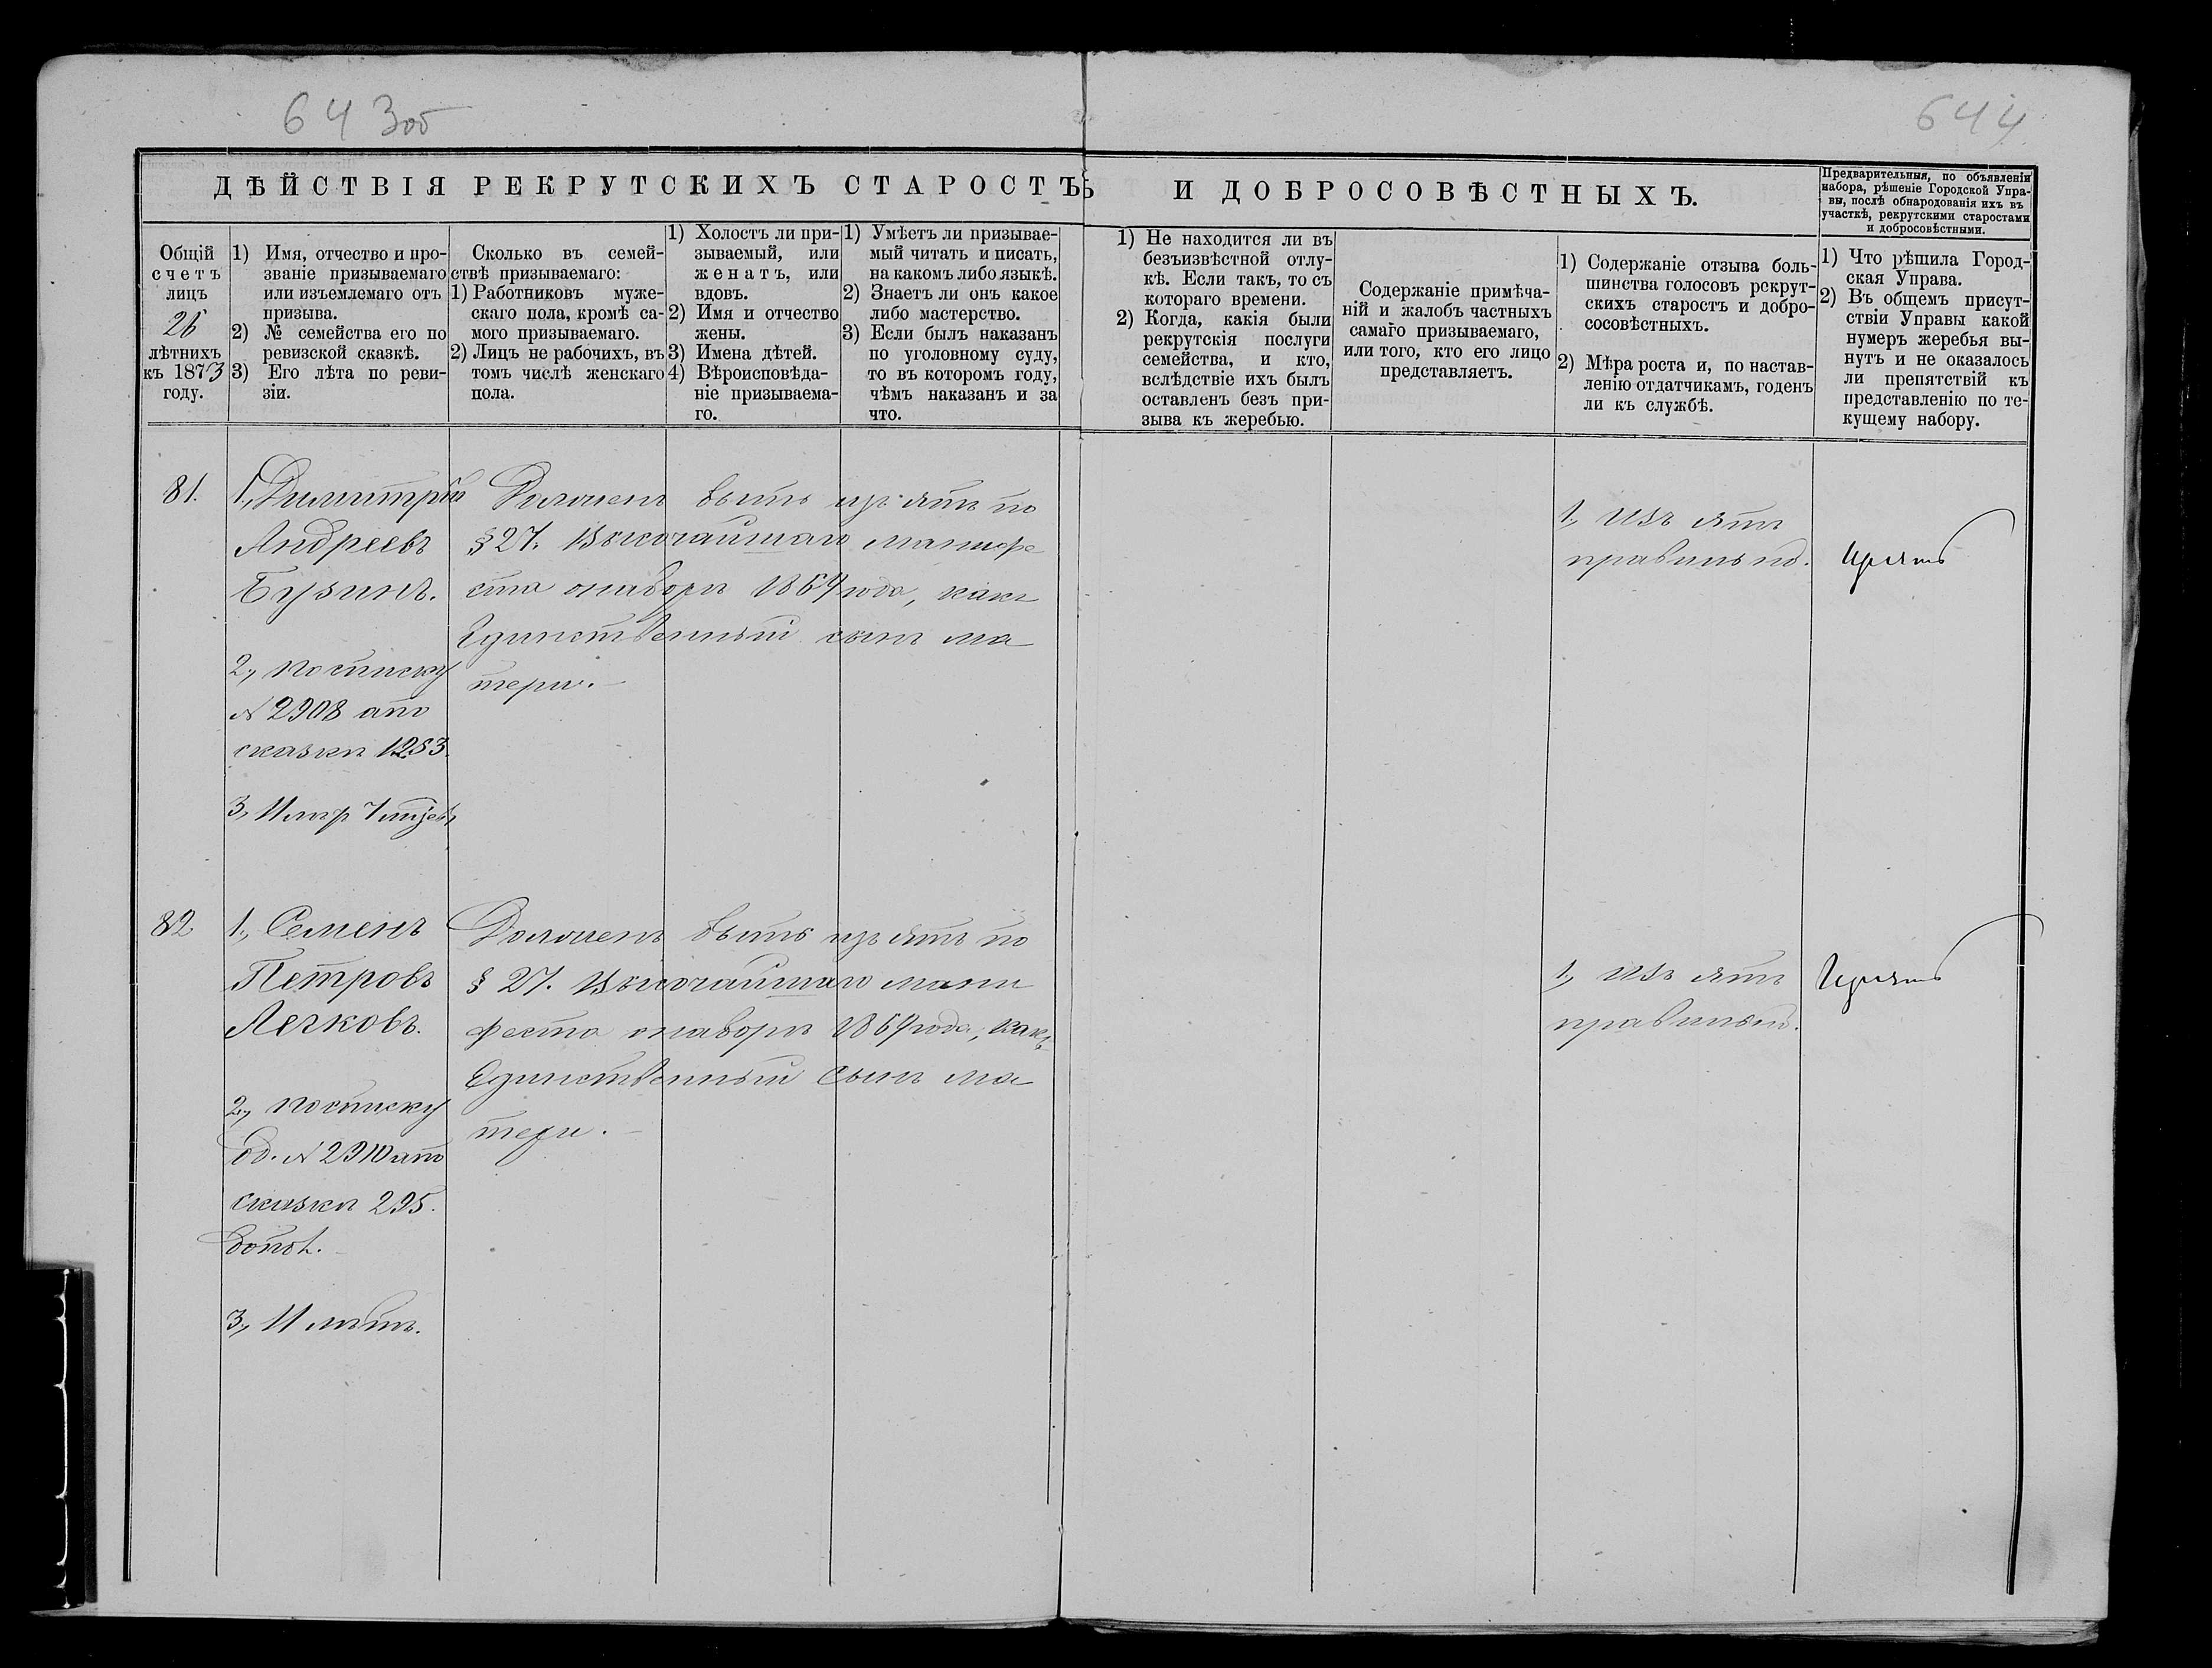 643об
644
ДѢЙСТВІЯ РЕКРУТСКИХЪ СТАРОСТЪ И ДОБРОСОВѢСТНЫХЪ.
Предварительныя, по объявленіи
набора, рѣшеніе Городской Упра-
вы, послѣ обнародованія ихъ въ
участкѣ, рекрутскими старостами
и добросовѣстными.
Общій
счетъ
лицъ
26
лѣтнихъ
къ 1873
году.
1) Имя, отчество и про-
званіе призываемаго
или изъемлемаго отъ
призыва.
2) № семейства его по
ревизской сказкѣ.
3) Его лѣта по реви-
зіи.
Сколько въ семей-
ствѣ призываемаго:
1) Работниковъ муже-
скаго пола, кромѣ са-
мого призываемаго.
2) Лицъ не рабочихъ, въ
томъ числѣ женскаго
пола.
1) Холостъ ли при-
зываемый, или
женатъ, или
вдовъ.
2) Имя и отчество
жены.
3) Имена дѣтей.
4) Вѣроисповѣда-
ніе призываема-
го.
1) Умѣетъ ли призывае-
мый читать и писать,
на какомъ либо языкѣ.
2) Знаетъ ли онъ какое
либо мастерство.
3) Если былъ наказанъ
по уголовному суду,
то въ которомъ году,
чѣмъ наказанъ и за
что.
1) Не находится ли въ
безъизвѣстной отлу-
кѣ. Если такъ, то съ
котораго времени.
2) Когда, какія были
рекрутскія послуги
семейства, и кто,
вслѣдствіе ихъ былъ
оставленъ безъ при-
зыва къ жеребью.
Содержаніе примѣча-
ній и жалобъ частныхъ
самаго призываемаго,
или того, кто его лицо
представляетъ.
1) Содержаніе отзыва боль-
шинства голосовъ рекрут-
скихъ старостъ и добро-
сосовѣстныхъ.
2) Мѣра роста и, по настав-
ленію отдатчикамъ, годенъ
ли къ службѣ.
1) Что рѣшила Город-
ская Управа.
2) Въ общемъ присут-
ствіи Управы какой
нумеръ жеребья вы-
нутъ и не оказалось
ли препятствій къ
представленію по те-
кущему набору.
81.
1., Димитрій
Андреевъ
Бузинъ.
2., по списку
№ 2908 а по
сказкѣ 1283.
Долженъ быть изъятъ по
§ 27. Высочайшаго манифе
ста о наборѣ 1864 года, какъ
Единственный сынъ ма
тери. —
1., Изъятъ
правильно.
Изъять
82
1., Семенъ
Петровъ
Легковъ.
2., по списку
од. № 2910 а по
сказкѣ 295.
допол.
3., 11 лѣтъ.
Долженъ быть изъятъ по
§ 27. Высочайшаго мани
феста о наборѣ 1864 года, какъ
Единственный сынъ ма
тери. —
1., Изъятъ
правильно.
Изъять